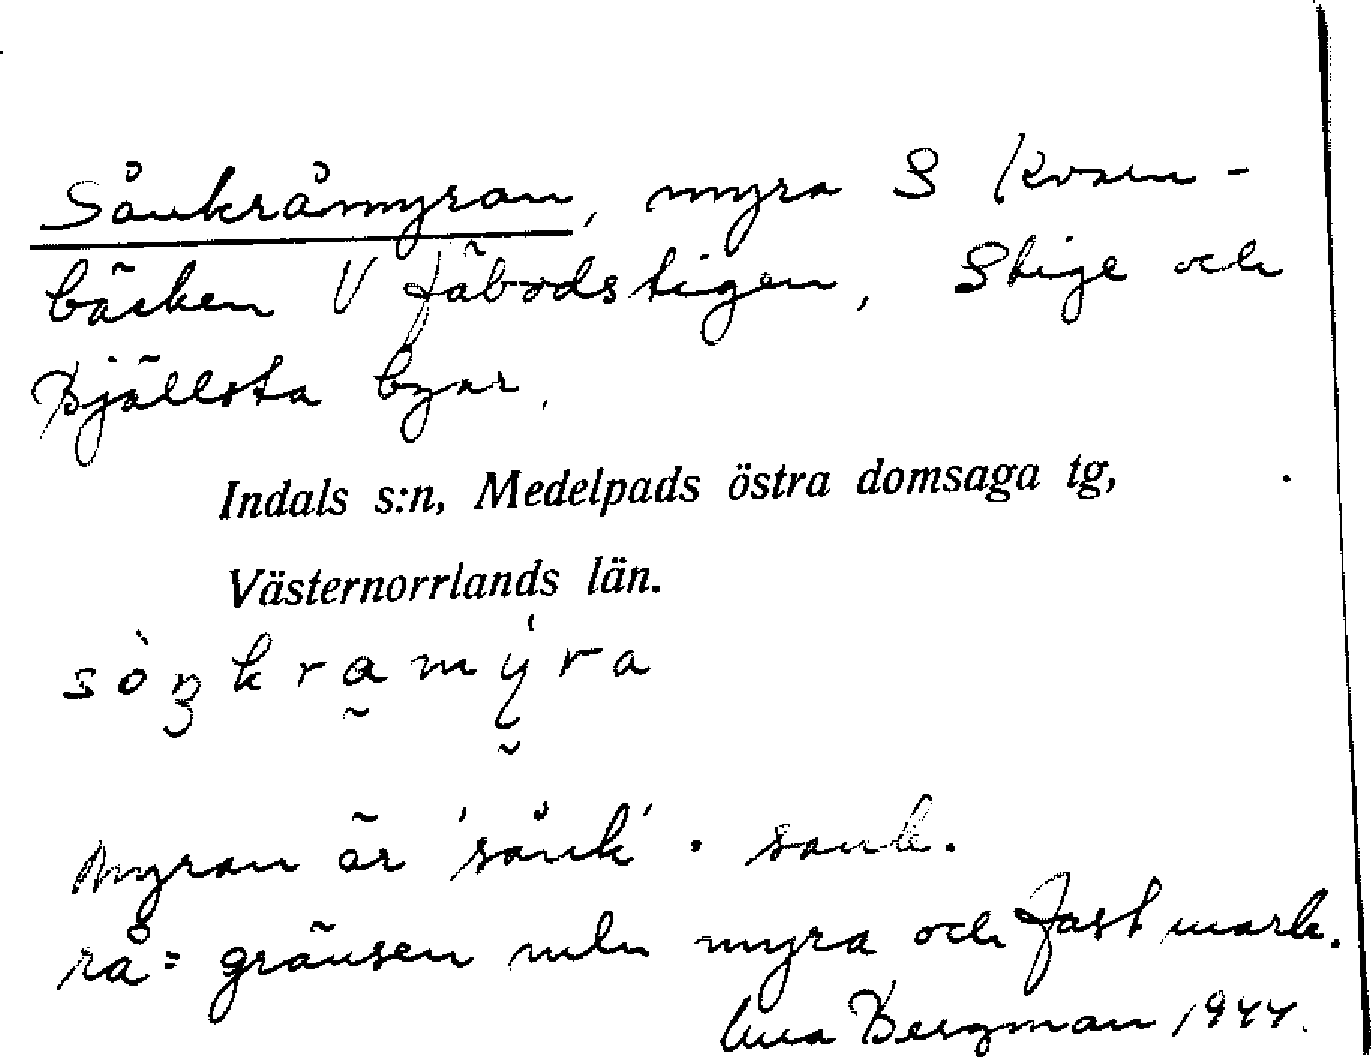 Sånkråmyran, myra S Kvarn-
bäcken V fäbodstigen, Stige och
Bjällsta byar.
Indals s:n, Medelpads östra domsaga tg,
Västernorrlands län.
sòŋkramýra
Myran är 'sånk' . sank.
rå = gränsen mln myra och fast mark.
Bergman 1944.